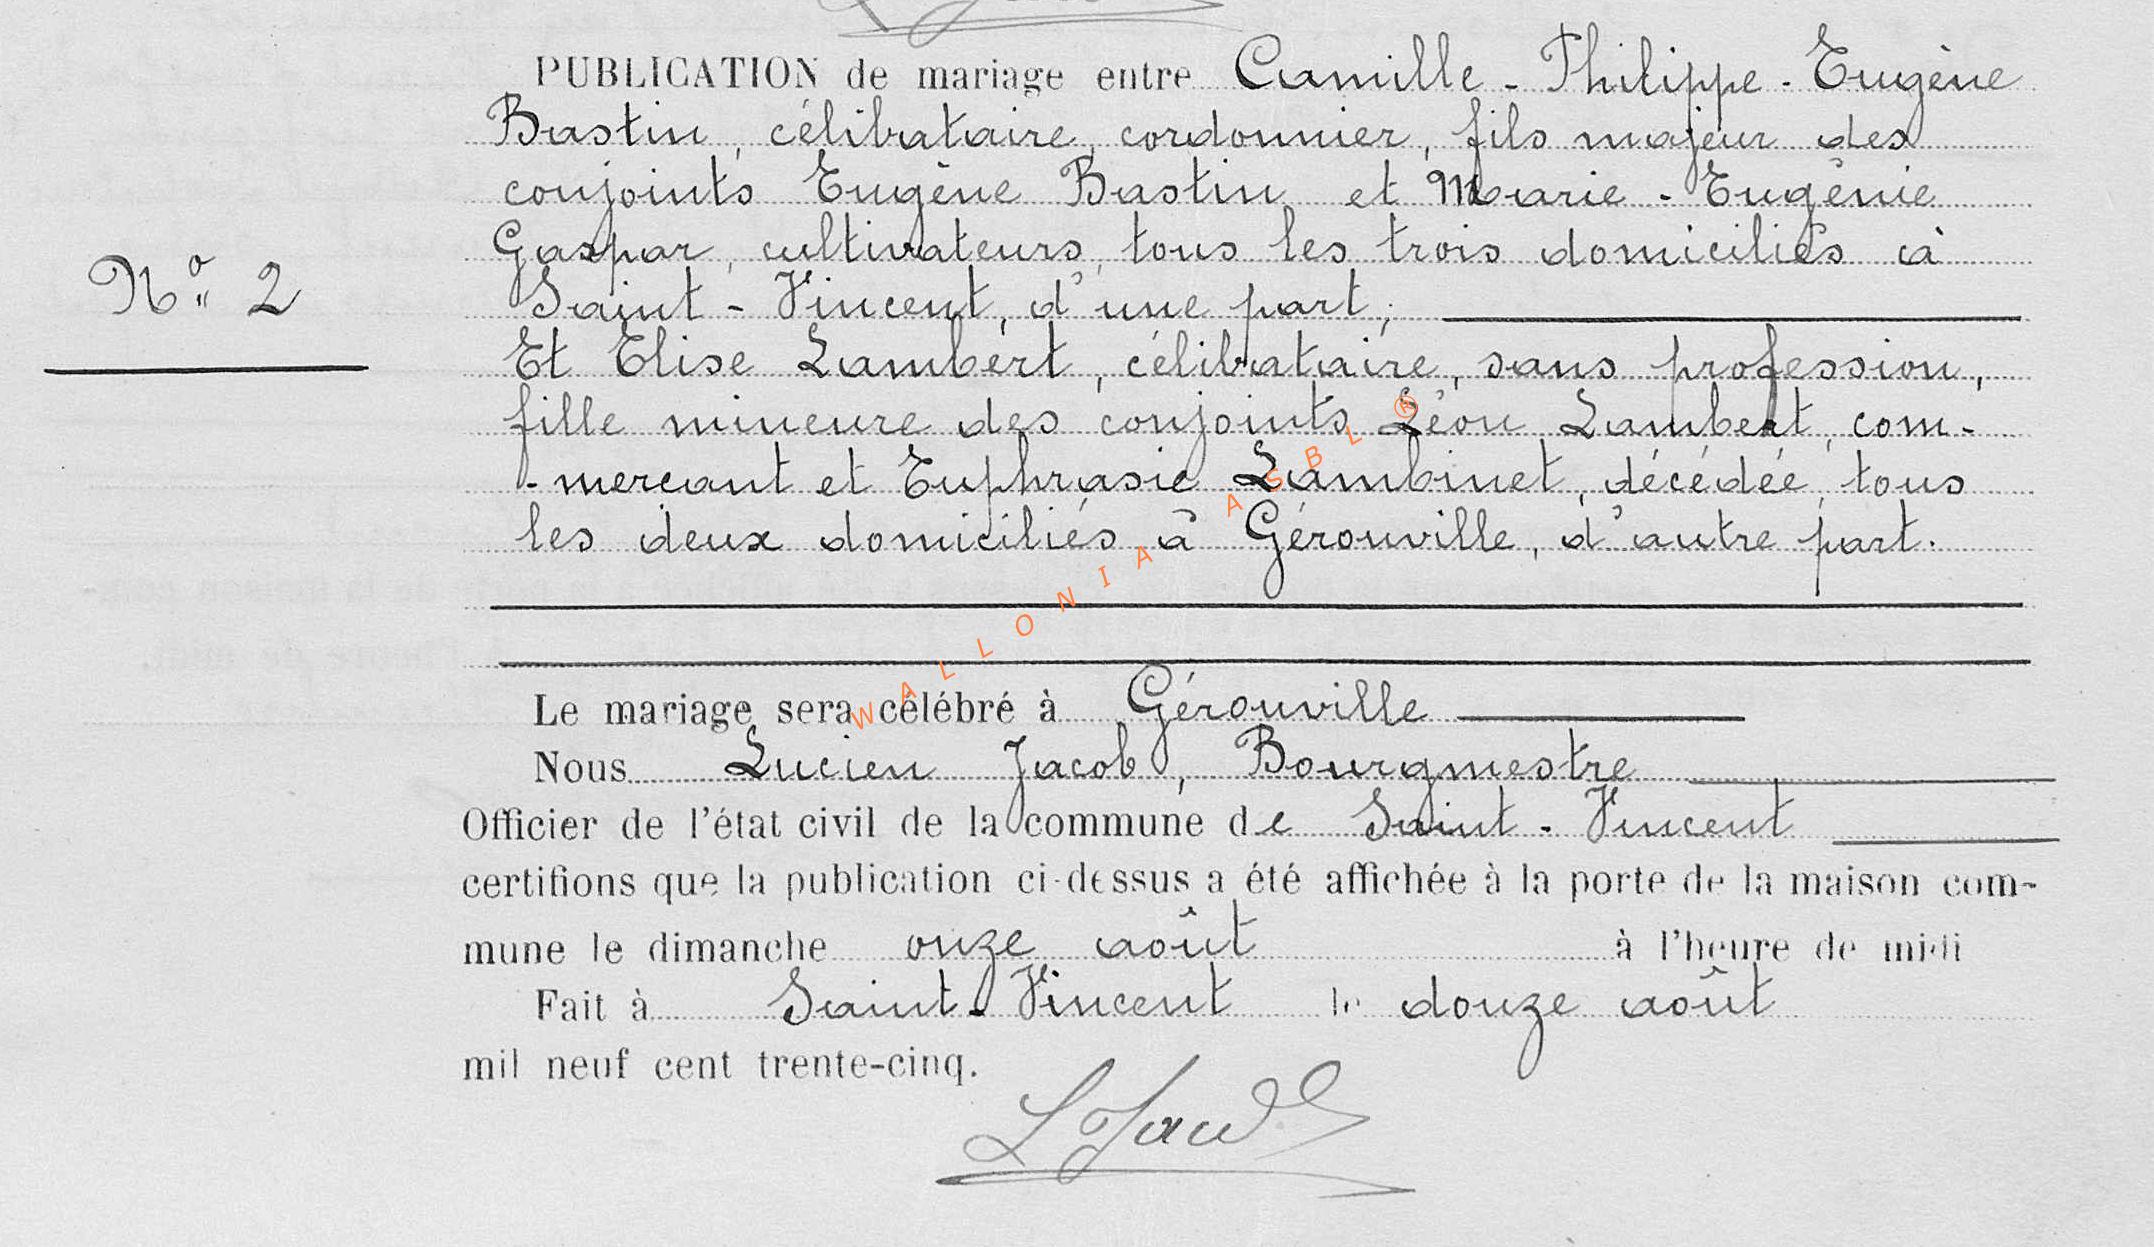 PUBLICATION de mariage entre Camille - Philippe - Eugène
Bastin, célibataire, cordonnier, fils majeur des
conjoints Eugène Bastin et Marie - Eugénie
Gaspar, cultivateurs, tous les trois domiciliés à
No 2
Saint - Vincent, d'une part;
Et Elise Lambert, célibataire, sans profession,
fille mineure des conjoints Léon Lambert, com-
-mercant et Euphrasie Lambinet, décédée, tous
les deux domiciliés à Gérouville, d'autre part.
WALLONIA ASBL ®
Le mariage sera célébré à Gérouville
Nous Lucien Jacob, Bourgmestre
Officier de l'état civil de la commune de Saint - Vincent
certifions que la publication ci-dessus a été affichée à la porte de la maison com-
mune le dimanche onze août à l'heure de midi
Fait à Saint - Vincent le douze août
mil neuf cent trente-cinq.
L Jacob